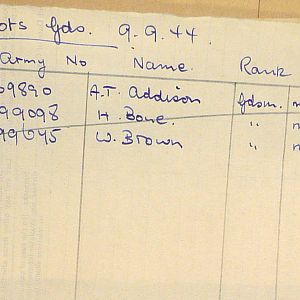 ots Gds. 9.9.44.
Army No Name. Rank
69890 A.T. Addison Gdsm.
99098 H. Bone. "
99045 W. Brown "